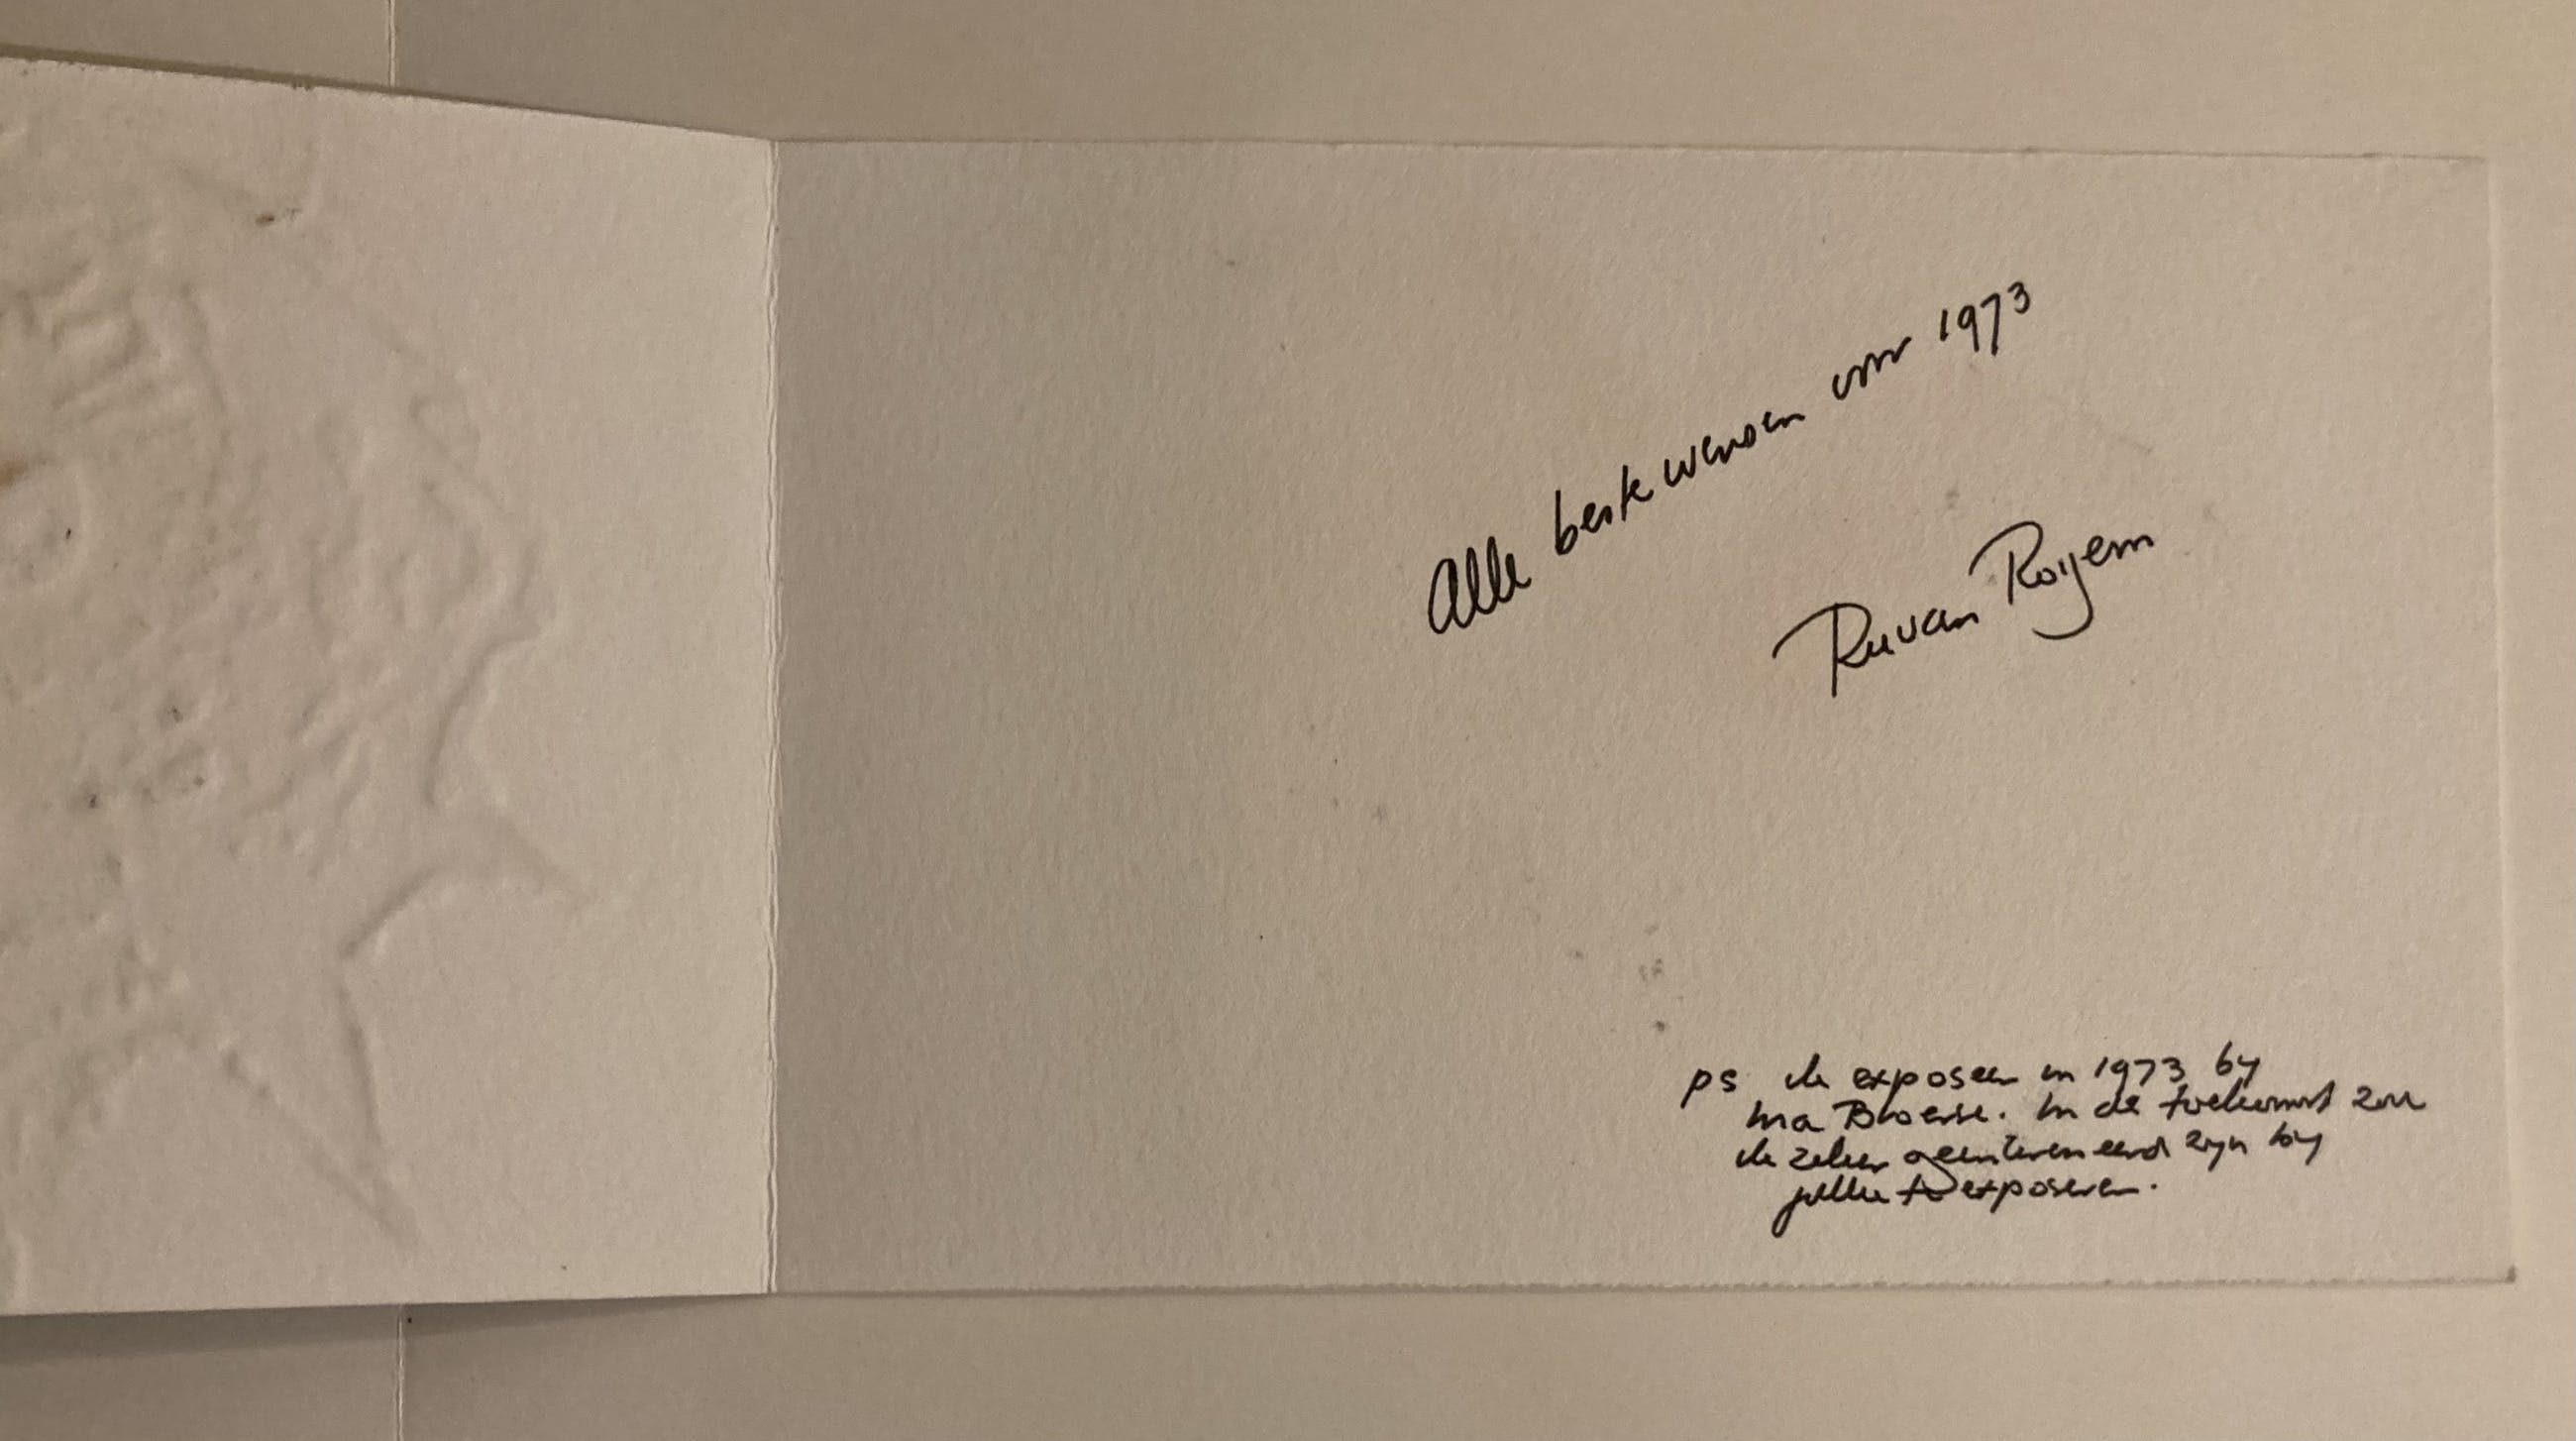 Alle beste wensen voor 1973
Ru van Rossem
ps ik exposeer in 1973 by
In de toekomst zou
ik zeker geinteresseerd zyn by
jullie te exposeren.